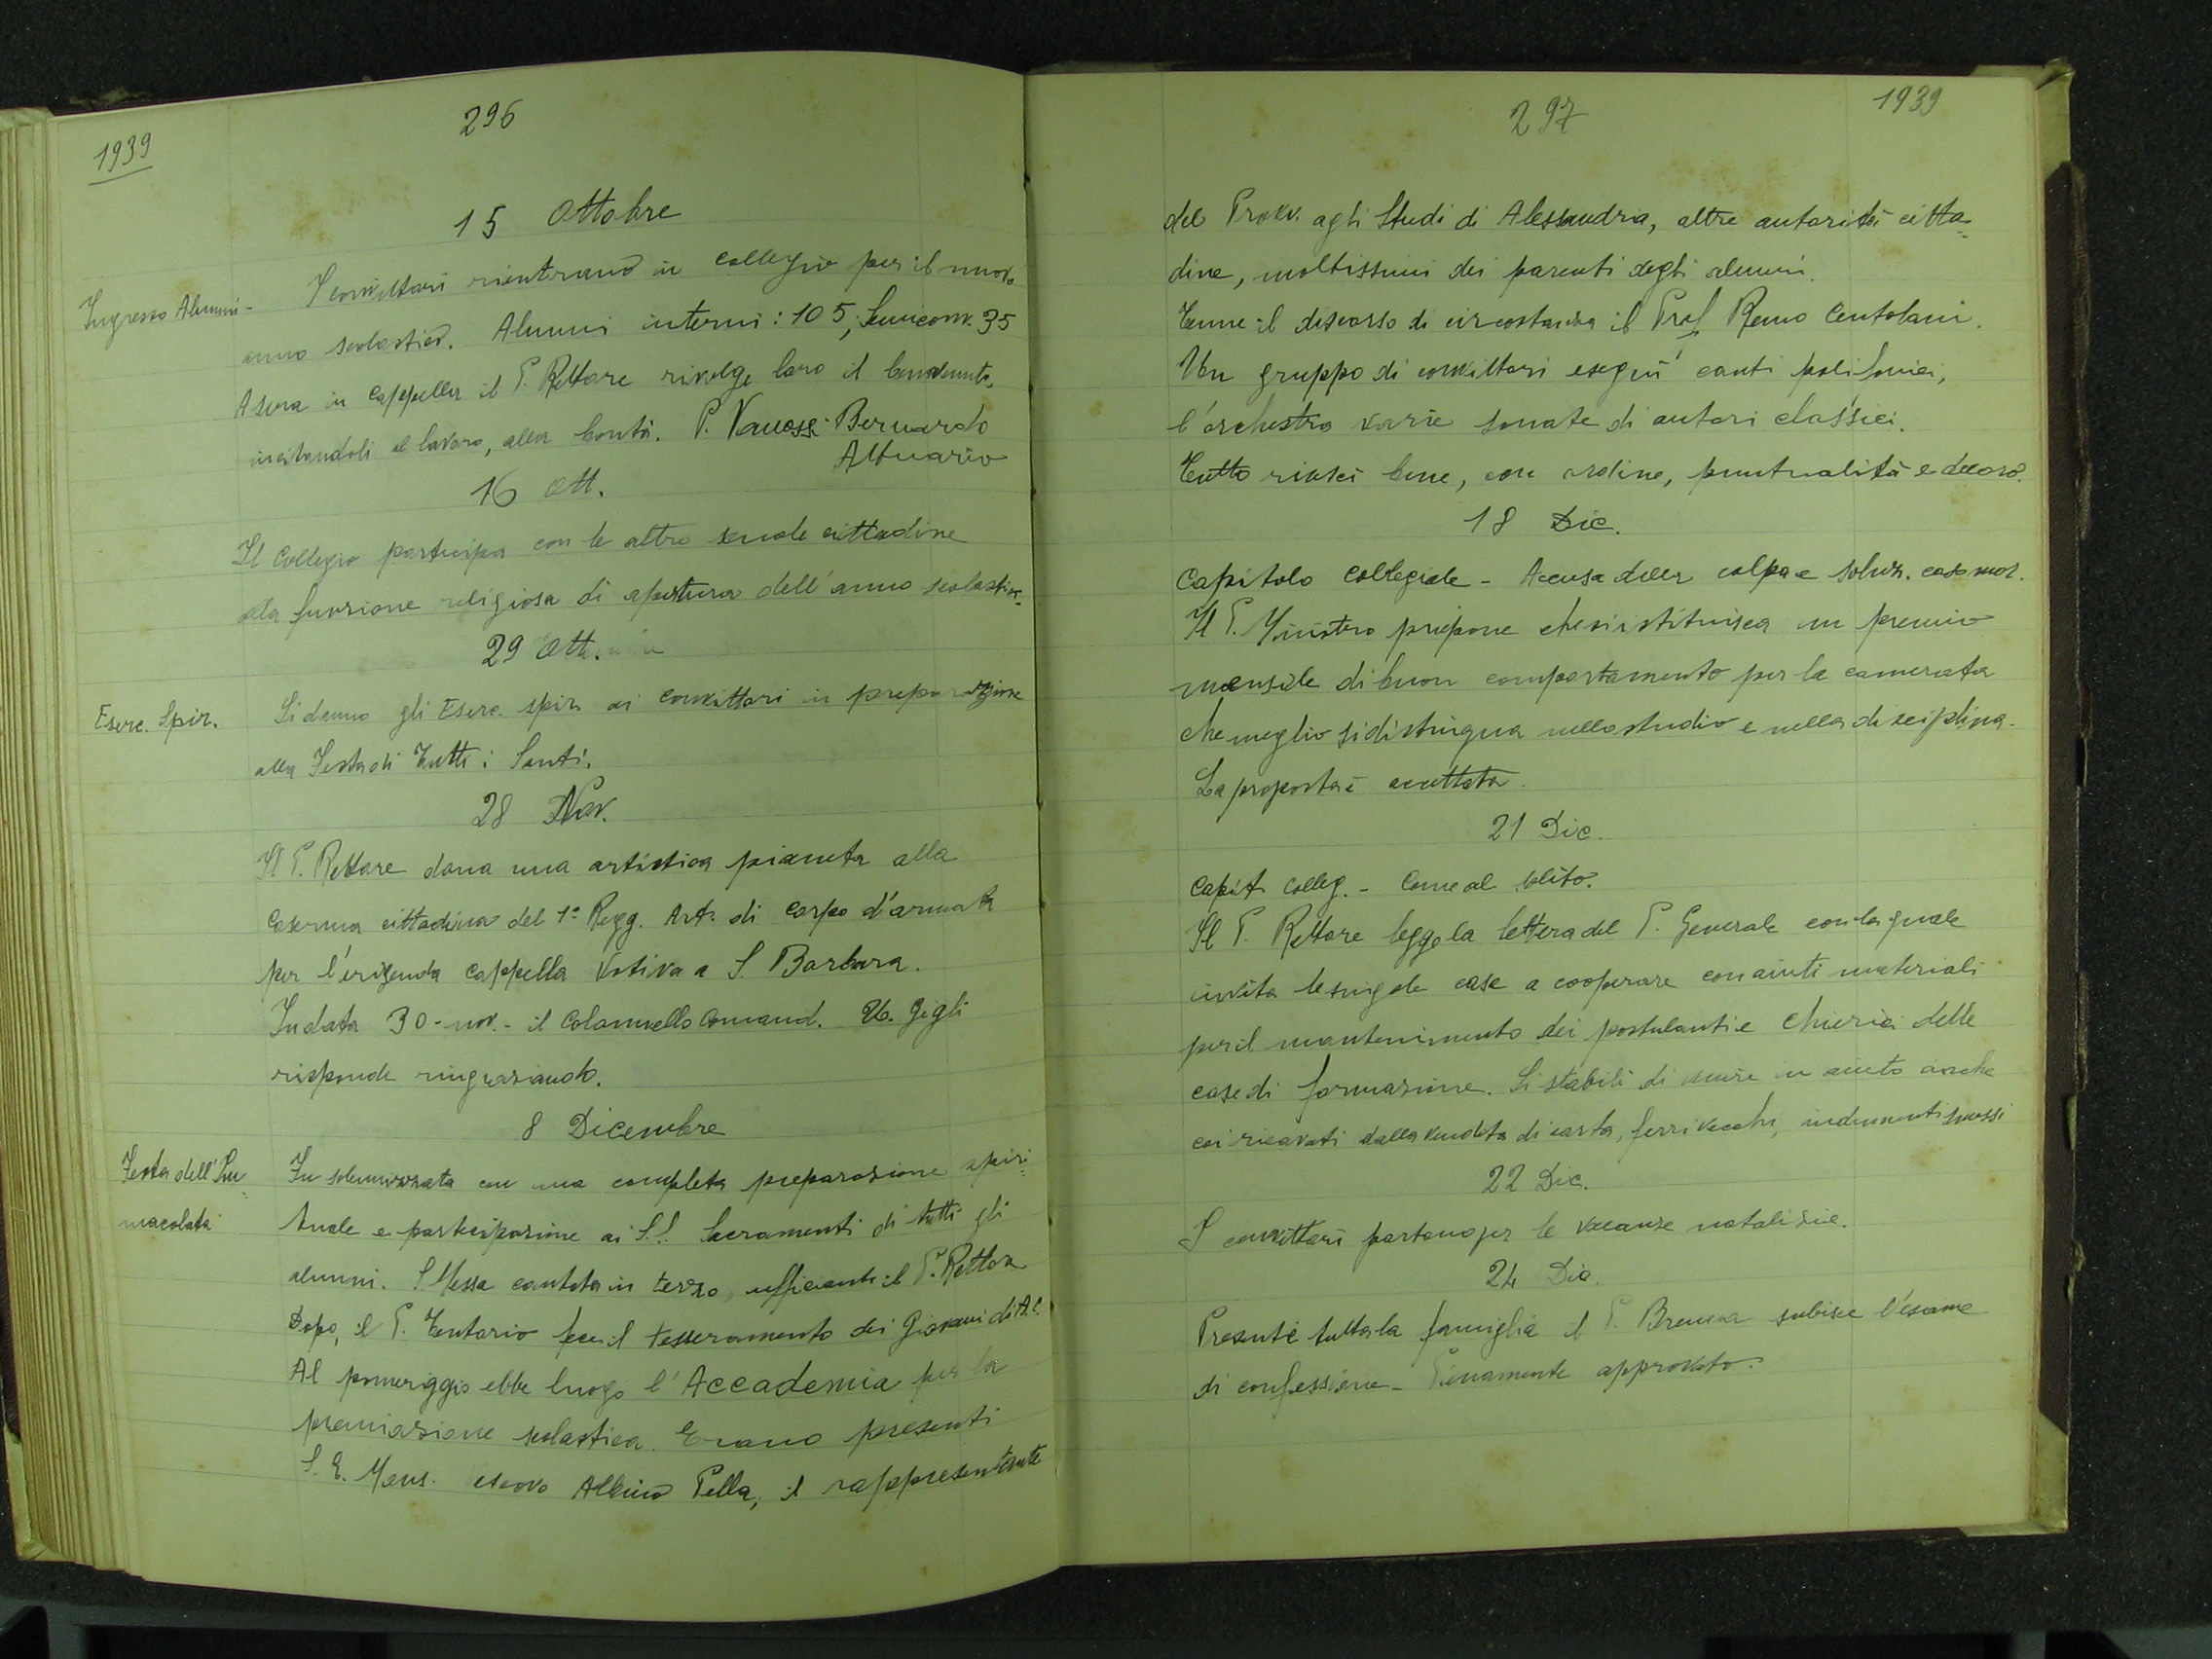 296
1939
15 Ottobre
Ingresso Alunni - I convittori rientrano in collegio per il nuovo
anno scolastico. Alunni interni: 105; Semiconv. 35
A sera in cappella il P. Rettore rivolge loro il benvenuto,
incitandoli al lavoro, alla bontà. P. Vanossi Bernardo
Attuario
16 Ott.
Il Collegio partecipa con le altre scuole cittadine
alla funzione religiosa di apertura dell'anno scolastico.
29 Ott.
Eserc. Spir. Si danno gli Eserc. spir. ai convittori in preparazione
alla Festa di Tutti i Santi.
28 Nov.
Il P. Rettore dona una artistica pianeta alla
Caserma cittadina del 1° Regg. Art. di Corpo d'armata
per l'erigenda cappella votiva a S. Barbara.
In data 30 - nov. - il Colonnello Comand. U. Gigli
risponde ringraziando.
8 Dicembre
Festa dell'Im= Fu solennizzata con una completa preparazione spiri=
macolata tuale e partecipazione ai S.S. Sacramenti di tutti gli
alunni. S. Messa cantata in terzo, officiante il P. Rettore
Dopo, il P. Tentorio fece il tesseramento dei Giovani di A.C.
Al pomeriggio ebbe luogo l'Accademia per la
premiazione scolastica. Erano presenti
S. E. Mons. vescovo Albino Pella, il rappresentante
297
1939
del Provv. agli Studi di Alessandria, altre autorità citta=
dine, moltissimi dei parenti degli alunni.
Tenne il discorso di circostanza il Prof. Remo Centolani.
Un gruppo di convittori eseguì canti polifonici,
l'orchestra varie sonate di autori classici.
Tutto riuscì bene, con ordine, puntualità e decoro.
18 Dic.
Capitolo Collegiale - Accusa della colpa e soluz. caso mor.
Il P. Ministro propone che si istituisca un premio
mensile di buon comportamento per la camerata
che meglio si distingua nello studio e nella disciplina.
La proposta è accettata.
21 Dic.
Capit. Colleg. - Come al solito.
Il P. Rettore legge la lettera del P. Generale con la quale
invita le singole case a cooperare con aiuti materiali
per il mantenimento dei postulanti e Chierici delle
case di formazione. Si stabilì di venire in aiuto anche
coi ricavati dalla vendita di carta, ferri vecchi, indumenti smessi
22 Dic.
I convittori partono per le vacanze natalizie.
24 Dic.
Presente tutta la famiglia il P. Brenna subisce l'esame
di confessione - Pienamente approvato.